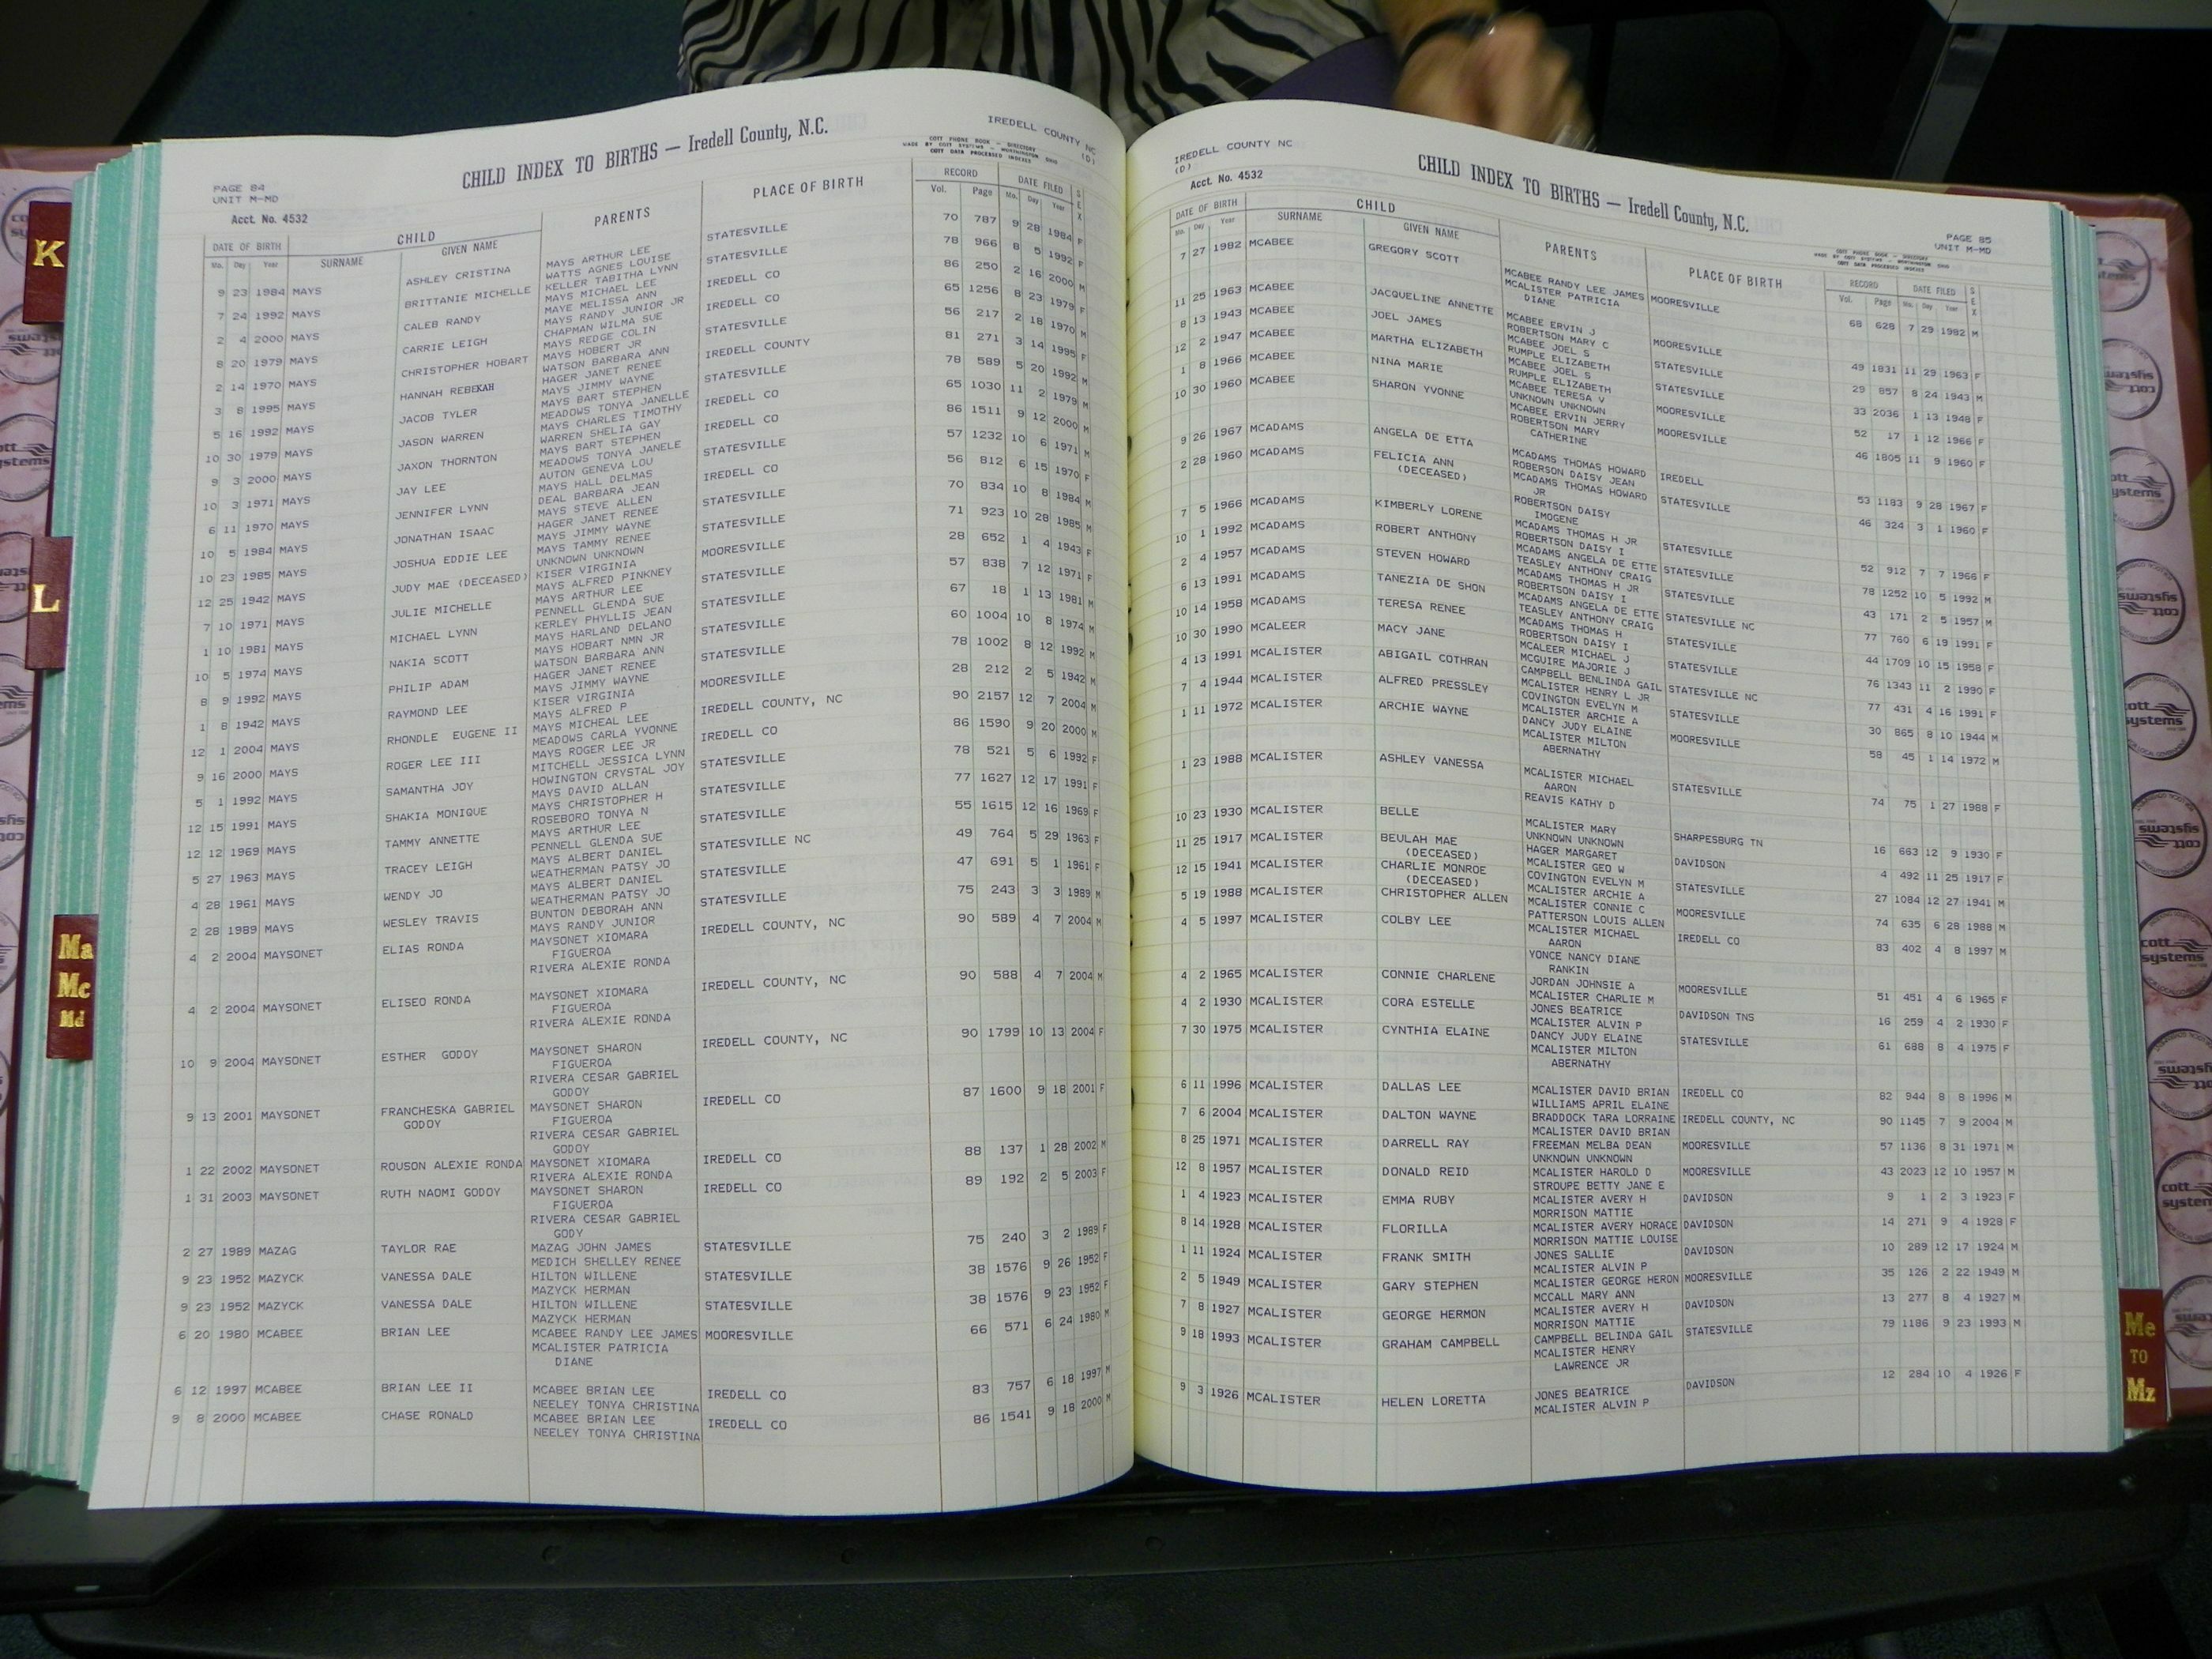 K
L
Ma
Mc
Md
Me
TO
Mz
PAGE 84
UNIT M-MD
Acct. No. 4532
CHILD INDEX TO BIRTHS — Iredell County, N.C.
IREDELL COUNTY NC
(D)
COTT PHONE BOOK - DIRECTORY
MADE BY COTT SYSTEMS - WORTHINGTON OHIO
COTT DATA PROCESSED INDEXES
DATE OF BIRTH CHILD PARENTS PLACE OF BIRTH RECORD DATE FILED SEX
Mo. Day Year SURNAME GIVEN NAME Vol. Page Mo. Day Year
9 23 1984 MAYS ASHLEY CRISTINA MAYS ARTHUR LEE STATESVILLE 70 787 9 28 1984 F
WATTS AGNES LOUISE
7 24 1992 MAYS BRITTANIE MICHELLE KELLER TABITHA LYNN STATESVILLE 78 966 8 5 1992 F
MAYS MICHAEL LEE
2 4 2000 MAYS CALEB RANDY MAYE MELISSA ANN IREDELL CO 86 250 2 16 2000 M
MAYS RANDY JUNIOR JR
8 20 1979 MAYS CARRIE LEIGH CHAPMAN WILMA SUE IREDELL CO 65 1256 8 23 1979 F
MAYS REDGE COLIN
2 14 1970 MAYS CHRISTOPHER HOBART MAYS HOBERT JR STATESVILLE 56 217 2 18 1970 M
WATSON BARBARA ANN
3 8 1995 MAYS HANNAH REBEKAH HAGER JANET RENEE IREDELL COUNTY 81 271 3 14 1995 F
MAYS JIMMY WAYNE
5 16 1992 MAYS JACOB TYLER MAYS BART STEPHEN STATESVILLE 78 589 5 20 1992 M
MEADOWS TONYA JANELLE
10 30 1979 MAYS JASON WARREN MAYS CHARLES TIMOTHY IREDELL CO 65 1030 11 2 1979 M
WARREN SHELIA GAY
9 3 2000 MAYS JAXON THORNTON MAYS BART STEPHEN IREDELL CO 86 1511 9 12 2000 M
MEADOWS TONYA JANELE
10 3 1971 MAYS JAY LEE AUTON GENEVA LOU STATESVILLE 57 1232 10 6 1971 M
MAYS HALL DELMAS
6 11 1970 MAYS JENNIFER LYNN DEAL BARBARA JEAN IREDELL CO 56 812 6 15 1970 F
MAYS STEVE ALLEN
10 5 1984 MAYS JONATHAN ISAAC HAGER JANET RENEE STATESVILLE 70 834 10 8 1984 M
MAYS JIMMY WAYNE
10 23 1985 MAYS JOSHUA EDDIE LEE MAYS TAMMY RENEE STATESVILLE 71 923 10 28 1985 M
UNKNOWN UNKNOWN
12 25 1942 MAYS JUDY MAE (DECEASED) KISER VIRGINIA MOORESVILLE 28 652 1 4 1943 F
MAYS ALFRED PINKNEY
7 10 1971 MAYS JULIE MICHELLE MAYS ARTHUR LEE STATESVILLE 57 838 7 12 1971 F
PENNELL GLENDA SUE
1 10 1981 MAYS MICHAEL LYNN KERLEY PHYLLIS JEAN STATESVILLE 67 18 1 13 1981 M
MAYS HARLAND DELANO
10 5 1974 MAYS NAKIA SCOTT MAYS HOBART NMN JR STATESVILLE 60 1004 10 8 1974 M
WATSON BARBARA ANN
8 9 1992 MAYS PHILIP ADAM HAGER JANET RENEE STATESVILLE 78 1002 8 12 1992 M
MAYS JIMMY WAYNE
1 8 1942 MAYS RAYMOND LEE KISER VIRGINIA MOORESVILLE 28 212 2 5 1942 M
MAYS ALFRED P
12 1 2004 MAYS RHONDLE EUGENE II MAYS MICHEAL LEE IREDELL COUNTY, NC 90 2157 12 7 2004 M
MEADOWS CARLA YVONNE
9 16 2000 MAYS ROGER LEE III MAYS ROGER LEE JR IREDELL CO 86 1590 9 20 2000 M
MITCHELL JESSICA LYNN
5 1 1992 MAYS SAMANTHA JOY HOWINGTON CRYSTAL JOY STATESVILLE 78 521 5 6 1992 F
MAYS DAVID ALLAN
12 15 1991 MAYS SHAKIA MONIQUE MAYS CHRISTOPHER H STATESVILLE 77 1627 12 17 1991 F
ROSEBORO TONYA N
12 12 1969 MAYS TAMMY ANNETTE MAYS ARTHUR LEE STATESVILLE 55 1615 12 16 1969 F
PENNELL GLENDA SUE
5 27 1963 MAYS TRACEY LEIGH MAYS ALBERT DANIEL STATESVILLE NC 49 764 5 29 1963 F
WEATHERMAN PATSY JO
4 28 1961 MAYS WENDY JO MAYS ALBERT DANIEL STATESVILLE 47 691 5 1 1961 F
WEATHERMAN PATSY JO
2 28 1989 MAYS WESLEY TRAVIS BUNTON DEBORAH ANN STATESVILLE 75 243 3 3 1989 M
MAYS RANDY JUNIOR
4 2 2004 MAYSONET ELIAS RONDA MAYSONET XIOMARA IREDELL COUNTY, NC 90 589 4 7 2004 M
FIGUEROA
RIVERA ALEXIE RONDA
4 2 2004 MAYSONET ELISEO RONDA MAYSONET XIOMARA IREDELL COUNTY, NC 90 588 4 7 2004 M
FIGUEROA
RIVERA ALEXIE RONDA
10 9 2004 MAYSONET ESTHER GODOY MAYSONET SHARON IREDELL COUNTY, NC 90 1799 10 13 2004 F
FIGUEROA
RIVERA CESAR GABRIEL
GODOY
9 13 2001 MAYSONET FRANCHESKA GABRIEL MAYSONET SHARON IREDELL CO 87 1600 9 18 2001 F
GODOY FIGUEROA
RIVERA CESAR GABRIEL
GODOY
1 22 2002 MAYSONET ROUSON ALEXIE RONDA MAYSONET XIOMARA IREDELL CO 88 137 1 28 2002 M
RIVERA ALEXIE RONDA
1 31 2003 MAYSONET RUTH NAOMI GODOY MAYSONET SHARON IREDELL CO 89 192 2 5 2003 F
FIGUEROA
RIVERA CESAR GABRIEL
GODY
2 27 1989 MAZAG TAYLOR RAE MAZAG JOHN JAMES STATESVILLE 75 240 3 2 1989 F
MEDICH SHELLEY RENEE
9 23 1952 MAZYCK VANESSA DALE HILTON WILLENE STATESVILLE 38 1576 9 26 1952 F
MAZYCK HERMAN
9 23 1952 MAZYCK VANESSA DALE HILTON WILLENE STATESVILLE 38 1576 9 23 1952 F
MAZYCK HERMAN
6 20 1980 MCABEE BRIAN LEE MCABEE RANDY LEE JAMES MOORESVILLE 66 571 6 24 1980 M
MCALISTER PATRICIA
DIANE
6 12 1997 MCABEE BRIAN LEE II MCABEE BRIAN LEE IREDELL CO 83 757 6 18 1997 M
NEELEY TONYA CHRISTINA
9 8 2000 MCABEE CHASE RONALD MCABEE BRIAN LEE IREDELL CO 86 1541 9 18 2000 M
NEELEY TONYA CHRISTINA
IREDELL COUNTY NC
(D)
Acct. No. 4532
CHILD INDEX TO BIRTHS — Iredell County, N.C.
PAGE 85
UNIT M-MD
COTT PHONE BOOK - DIRECTORY
MADE BY COTT SYSTEMS - WORTHINGTON OHIO
COTT DATA PROCESSED INDEXES
DATE OF BIRTH CHILD PARENTS PLACE OF BIRTH RECORD DATE FILED SEX
Mo. Day Year SURNAME GIVEN NAME Vol. Page Mo. Day Year
7 27 1982 MCABEE GREGORY SCOTT MCABEE RANDY LEE JAMES MOORESVILLE 68 628 7 29 1982 M
MCALISTER PATRICIA
DIANE
11 25 1963 MCABEE JACQUELINE ANNETTE MCABEE ERVIN J MOORESVILLE 49 1831 11 29 1963 F
ROBERTSON MARY C
8 13 1943 MCABEE JOEL JAMES MCABEE JOEL S STATESVILLE 29 857 8 24 1943 M
RUMPLE ELIZABETH
12 2 1947 MCABEE MARTHA ELIZABETH MCABEE JOEL S STATESVILLE 33 2036 1 13 1948 F
RUMPLE ELIZABETH
1 8 1966 MCABEE NINA MARIE MCABEE TERESA V MOORESVILLE 52 17 1 12 1966 F
UNKNOWN UNKNOWN
10 30 1960 MCABEE SHARON YVONNE MCABEE ERVIN JERRY MOORESVILLE 46 1805 11 9 1960 F
ROBERTSON MARY
CATHERINE
9 26 1967 MCADAMS ANGELA DE ETTA MCADAMS THOMAS HOWARD IREDELL 53 1183 9 28 1967 F
ROBERSON DAISY JEAN
2 28 1960 MCADAMS FELICIA ANN MCADAMS THOMAS HOWARD STATESVILLE 46 324 3 1 1960 F
(DECEASED) JR
ROBERTSON DAISY
IMOGENE
7 5 1966 MCADAMS KIMBERLY LORENE MCADAMS THOMAS H JR STATESVILLE 52 912 7 7 1966 F
ROBERTSON DAISY I
10 1 1992 MCADAMS ROBERT ANTHONY MCADAMS ANGELA DE ETTE STATESVILLE 78 1252 10 5 1992 M
TEASLEY ANTHONY CRAIG
2 4 1957 MCADAMS STEVEN HOWARD MCADAMS THOMAS H JR STATESVILLE 43 171 2 5 1957 M
ROBERTSON DAISY I
6 13 1991 MCADAMS TANEZIA DE SHON MCADAMS ANGELA DE ETTE STATESVILLE NC 77 760 6 19 1991 F
TEASLEY ANTHONY CRAIG
10 14 1958 MCADAMS TERESA RENEE MCADAMS THOMAS H STATESVILLE 44 1709 10 15 1958 F
ROBERTSON DAISY I
10 30 1990 MCALEER MACY JANE MCALEER MICHAEL J STATESVILLE 76 1343 11 2 1990 F
MCGUIRE MAJORIE J
4 13 1991 MCALISTER ABIGAIL COTHRAN CAMPBELL BENLINDA GAIL STATESVILLE NC 77 431 4 16 1991 F
MCALISTER HENRY L JR
7 4 1944 MCALISTER ALFRED PRESSLEY COVINGTON EVELYN M STATESVILLE 30 865 8 10 1944 M
MCALISTER ARCHIE A
1 11 1972 MCALISTER ARCHIE WAYNE DANCY JUDY ELAINE MOORESVILLE 58 45 1 14 1972 M
MCALISTER MILTON
ABERNATHY
1 23 1988 MCALISTER ASHLEY VANESSA MCALISTER MICHAEL STATESVILLE 74 75 1 27 1988 F
AARON
REAVIS KATHY D
10 23 1930 MCALISTER BELLE MCALISTER MARY SHARPESBURG TN 16 663 12 9 1930 F
UNKNOWN UNKNOWN
11 25 1917 MCALISTER BEULAH MAE HAGER MARGARET DAVIDSON 4 492 11 25 1917 F
(DECEASED) MCALISTER GEO W
12 15 1941 MCALISTER CHARLIE MONROE COVINGTON EVELYN M STATESVILLE 27 1084 12 27 1941 M
(DECEASED) MCALISTER ARCHIE A
5 19 1988 MCALISTER CHRISTOPHER ALLEN MCALISTER CONNIE C MOORESVILLE 74 635 6 28 1988 M
PATTERSON LOUIS ALLEN
4 5 1997 MCALISTER COLBY LEE MCALISTER MICHAEL IREDELL CO 83 402 4 8 1997 M
AARON
YONCE NANCY DIANE
RANKIN
4 2 1965 MCALISTER CONNIE CHARLENE JORDAN JOHNSIE A MOORESVILLE 51 451 4 6 1965 F
MCALISTER CHARLIE M
4 2 1930 MCALISTER CORA ESTELLE JONES BEATRICE DAVIDSON TNS 16 259 4 2 1930 F
MCALISTER ALVIN P
7 30 1975 MCALISTER CYNTHIA ELAINE DANCY JUDY ELAINE STATESVILLE 61 688 8 4 1975 F
MCALISTER MILTON
ABERNATHY
6 11 1996 MCALISTER DALLAS LEE MCALISTER DAVID BRIAN IREDELL CO 82 944 8 8 1996 M
WILLIAMS APRIL ELAINE
7 6 2004 MCALISTER DALTON WAYNE BRADDOCK TARA LORRAINE IREDELL COUNTY, NC 90 1145 7 9 2004 M
MCALISTER DAVID BRIAN
8 25 1971 MCALISTER DARRELL RAY FREEMAN MELBA DEAN MOORESVILLE 57 1136 8 31 1971 M
UNKNOWN UNKNOWN
12 8 1957 MCALISTER DONALD REID MCALISTER HAROLD D MOORESVILLE 43 2023 12 10 1957 M
STROUPE BETTY JANE E
1 4 1923 MCALISTER EMMA RUBY MCALISTER AVERY H DAVIDSON 9 1 2 3 1923 F
MORRISON MATTIE
8 14 1928 MCALISTER FLORILLA MCALISTER AVERY HORACE DAVIDSON 14 271 9 4 1928 F
MORRISON MATTIE LOUISE
1 11 1924 MCALISTER FRANK SMITH JONES SALLIE DAVIDSON 10 289 12 17 1924 M
MCALISTER ALVIN P
2 5 1949 MCALISTER GARY STEPHEN MCALISTER GEORGE HERON MOORESVILLE 35 126 2 22 1949 M
MCCALL MARY ANN
7 8 1927 MCALISTER GEORGE HERMON MCALISTER AVERY H DAVIDSON 13 277 8 4 1927 M
MORRISON MATTIE
9 18 1993 MCALISTER GRAHAM CAMPBELL CAMPBELL BELINDA GAIL STATESVILLE 79 1186 9 23 1993 M
MCALISTER HENRY
LAWRENCE JR
9 3 1926 MCALISTER HELEN LORETTA JONES BEATRICE DAVIDSON 12 284 10 4 1926 F
MCALISTER ALVIN P
cott
systems